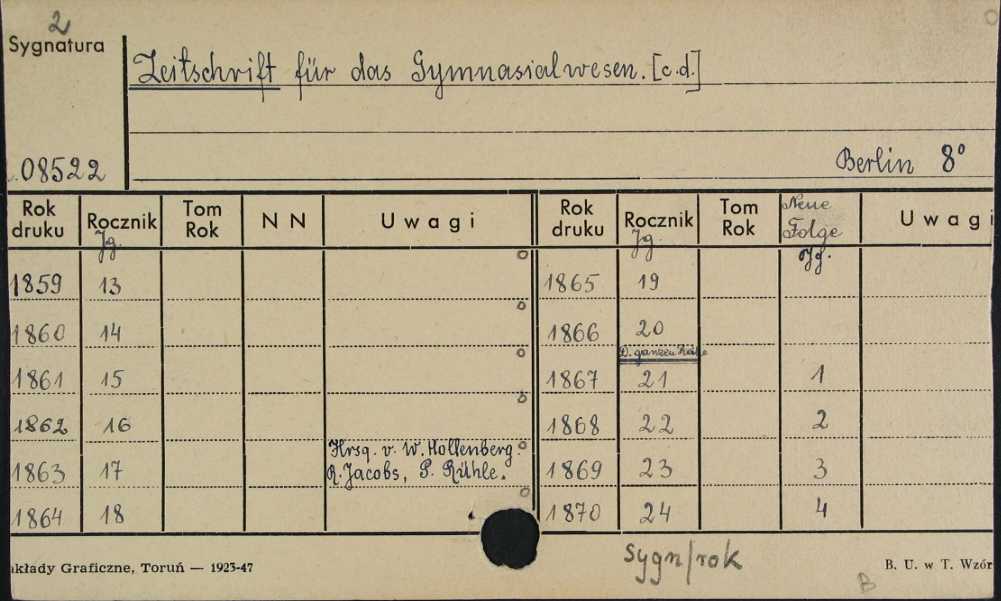 2
Sygnatura
Zeitschrift für das Gymnasialwesen. [c.d.]
08522
Berlin 8°
Rok druku Rocznik Jg. Tom Rok N N Uwagi Rok druku Rocznik Jg. Tom Rok Neue Folge Jg. Uwagi
1859 13 1865 19
1860 14 1866 20
D. ganzen Reihe
1861 15 1867 21 1
1862 16 1868 22 2
Hrsg. v. W. Hollenberg.
1863 17 R. Jacobs, P. Rühle. 1869 23 3
1864 18 1870 24 4
sygn/rok
akłady Graficzne, Toruń — 1923-47
B. U. w T. Wzór
B